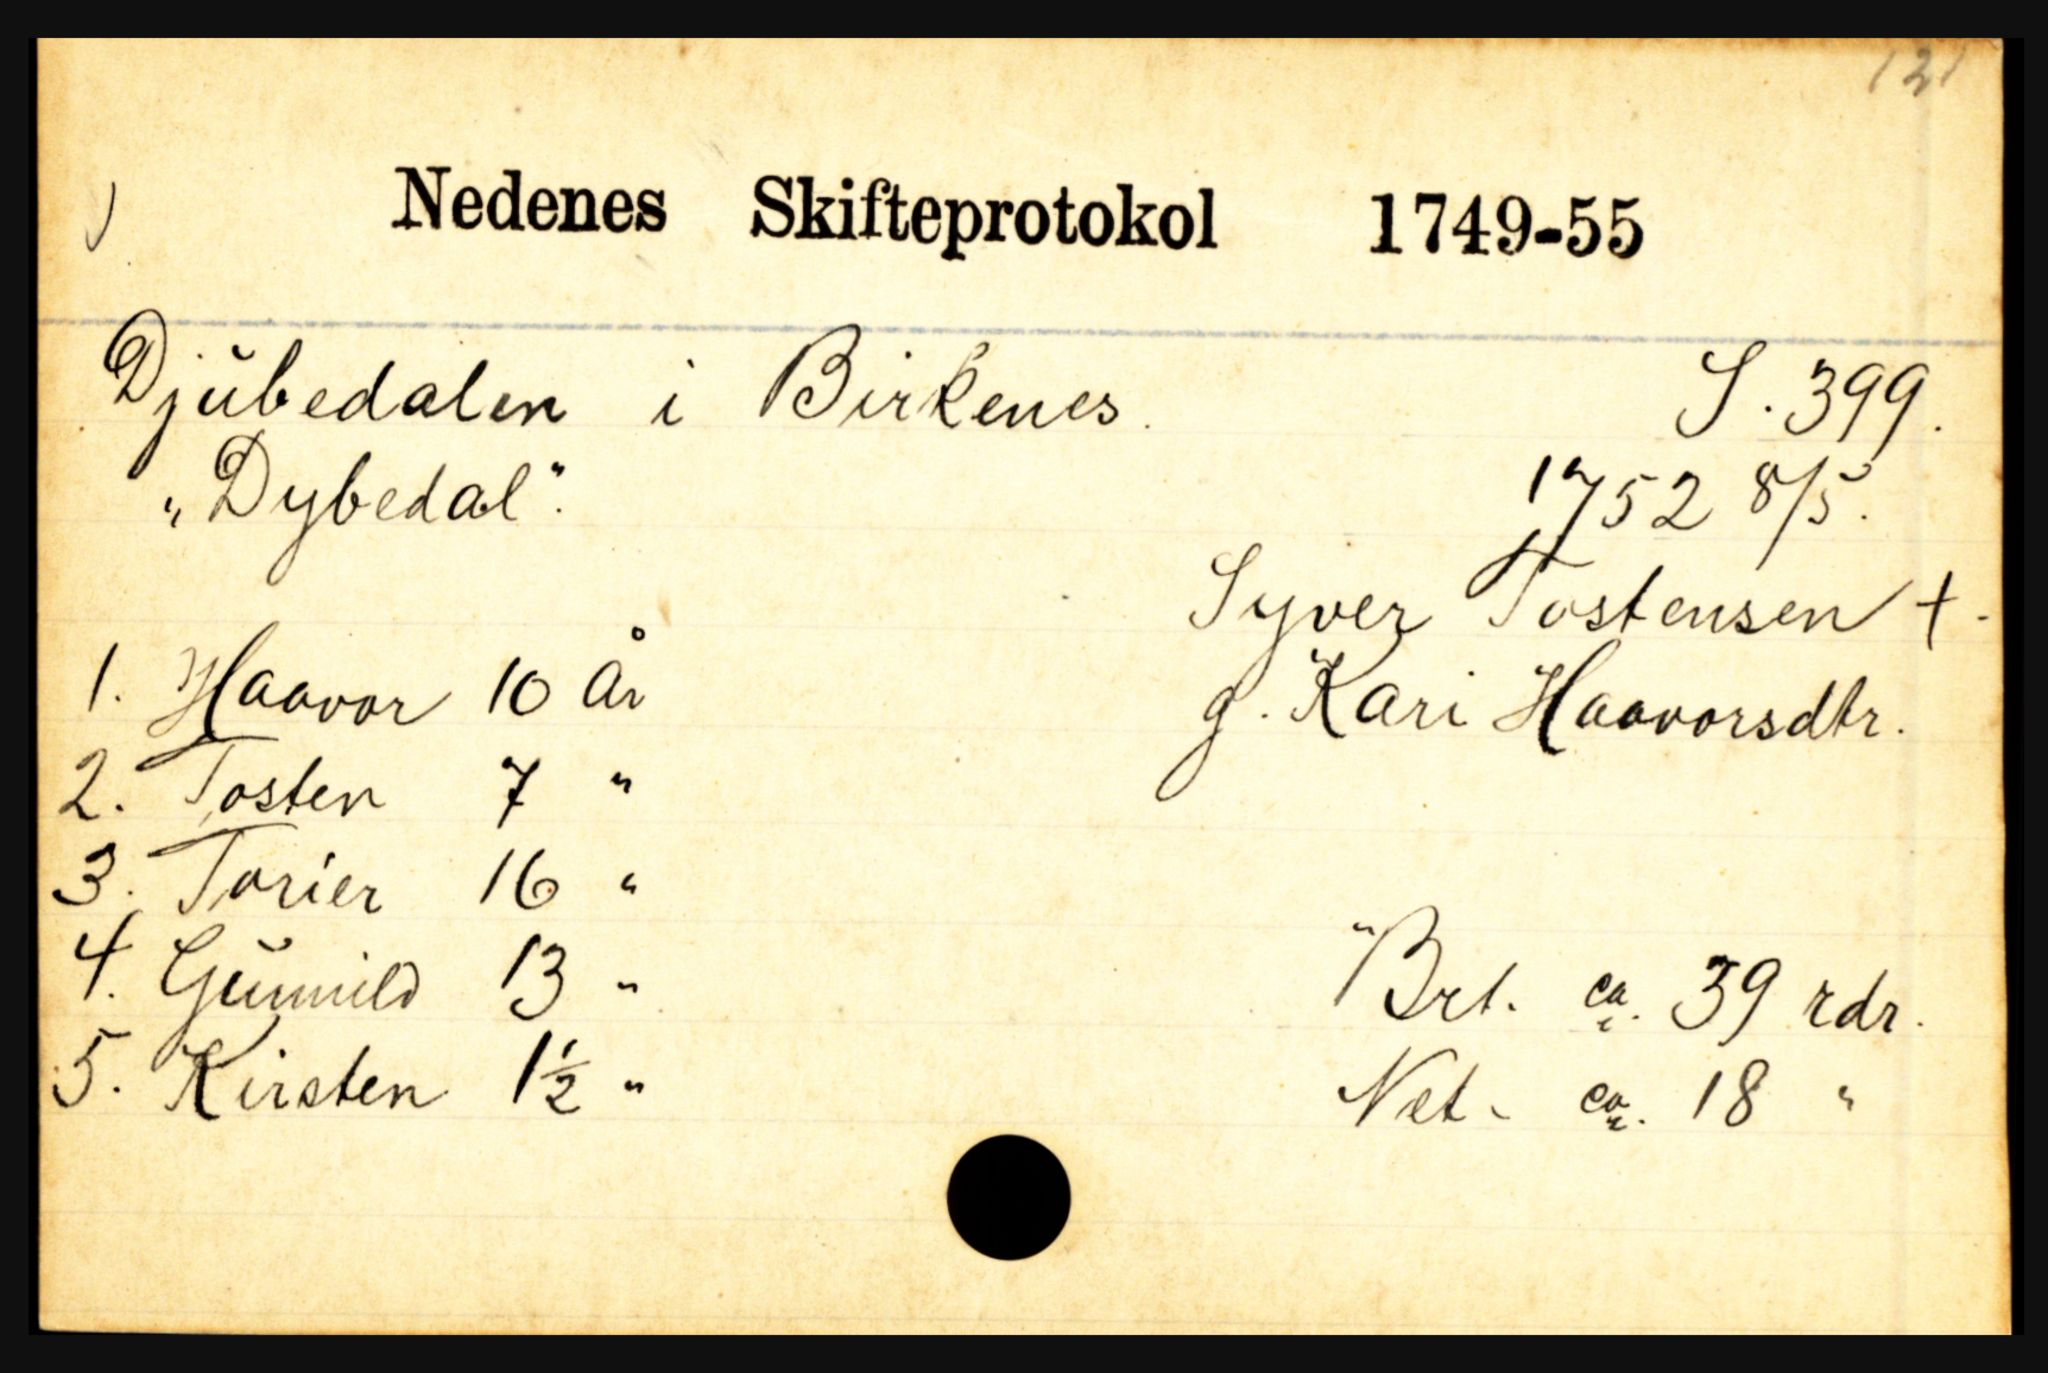 121
Nedenes Skifteprotokol 1749-55
Djŭbedalen i Birkenes. S. 399.
„Dybedal". 1752 8/5.
Syver Tostensen †.
1. Haavor 10 År g. Kari Haavorsdtr.
2. Tosten 7 "
3. Torier 16 "
4. Gŭnnild 13 " Brt. ca. 39 rdr.
5. Kirsten 1½ " Net. ca. 18 "